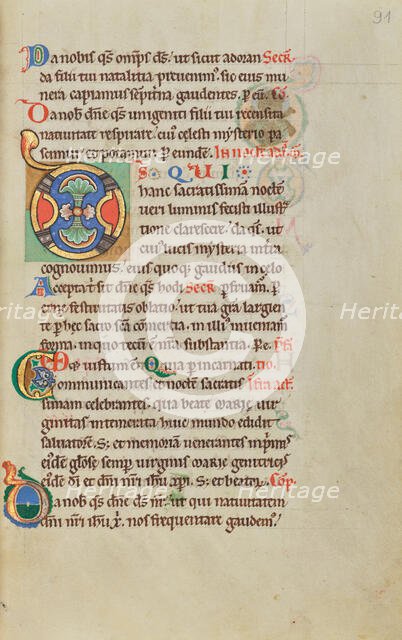 91
Da nobis qs omps ds. ut sicut adoran Secr
da filii tui natalitia preuenim. sic eius mu
nera capiamus sempitna gaudentes. p eu. Co
Da nob dne qs unigeniti filii tui recensita
natiuitate respirare. cui celesti mysterio pa
scimur et potamur. p eundem.
S QUI
hanc sacratissimam noctem
ueri luminis fecisti illust
tione clarescere. da qs. ut
cui lucis mysteria in tra
cognouimus. eius quoq gaudiis in celo
Accepta t sit dne qs hodi Secr pfruam.
erne festiuitatis oblatio. ut tua gra largien
te p hec sacro sca comercia. in illi inueniam
forma. in quo tecu na substantia. P e.
eq uistum et Quia p incarnati
Communicantes et noctem sacratis
simam celebrantes. qua beate marie uir
ginitas intemerata huic mundo edidit
saluatore. S; et memoria uenerantes inprimis
eide gliose semp uirginis marie genitricis
eide di et dni nri ihu xpi. S; et beatoru Cop.
Da nob qs dne ds nr. ut qui natiuitatem
dni nri ihu x. nos frequentare gaudem.
Heritage
Heritage
Heritage
Heritage
Heritage